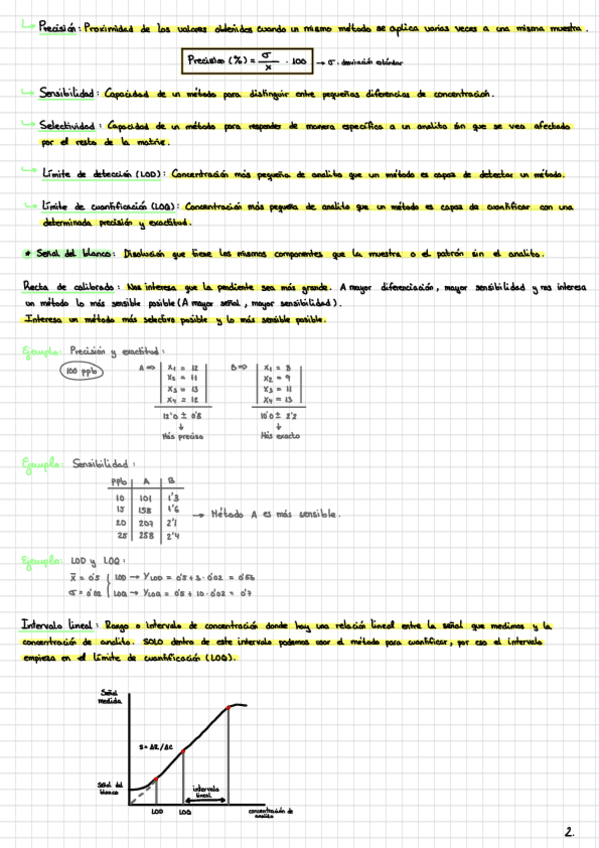 Precisión: Proximidad de los valores obtenidos cuando un mismo método se aplica varias veces a una misma muestra.
Precisión (%) = σ / x̄ · 100 → σ: desviación estándar
Sensibilidad: Capacidad de un método para distinguir entre pequeñas diferencias de concentración.
Selectividad: Capacidad de un método para responder de manera específica a un analito sin que se vea afectado
por el resto de la matriz.
Límite de detección (LOD): Concentración más pequeña de analito que un método es capaz de detectar un método.
Límite de cuantificación (LOQ): Concentración más pequeña de analito que un método es capaz de cuantificar con una
determinada precisión y exactitud.
* Señal del blanco: Disolución que tiene los mismos componentes que la muestra o el patrón sin el analito.
Recta de calibrado: Nos interesa que la pendiente sea más grande. A mayor diferenciación, mayor sensibilidad y nos interesa
un método lo más sensible posible (A mayor señal, mayor sensibilidad).
Interesa un método más selectivo posible y lo más sensible posible.
Ejemplo: Precisión y exactitud:
100 ppb
A => x1 = 12 B => x1 = 8
x2 = 11 x2 = 9
x3 = 13 x3 = 11
x4 = 12 x4 = 13
12'0 ± 0'8 10'0 ± 2'2
↓ ↓
Más preciso Más exacto
Ejemplo: Sensibilidad:
ppb A B
10 101 1'3
15 158 1'6
20 207 2'1
25 258 2'4
→ Método A es más sensible.
Ejemplo: LOD y LOQ:
x̄ = 0'5 LOD → YLOD = 0'5 + 3 · 0'02 = 0'56
σ = 0'02 LOQ → YLOQ = 0'5 + 10 · 0'02 = 0'7
Intervalo lineal: Rango o intervalo de concentración donde hay una relación lineal entre la señal que medimos y la
concentración de analito. SOLO dentro de este intervalo podemos usar el método para cuantificar, por eso el intervalo
empieza en el límite de cuantificación (LOQ).
Señal
medida
S = ΔR/ΔC
Señal del
blanco
intervalo
lineal
LOD LOQ
concentración de
analito
2.